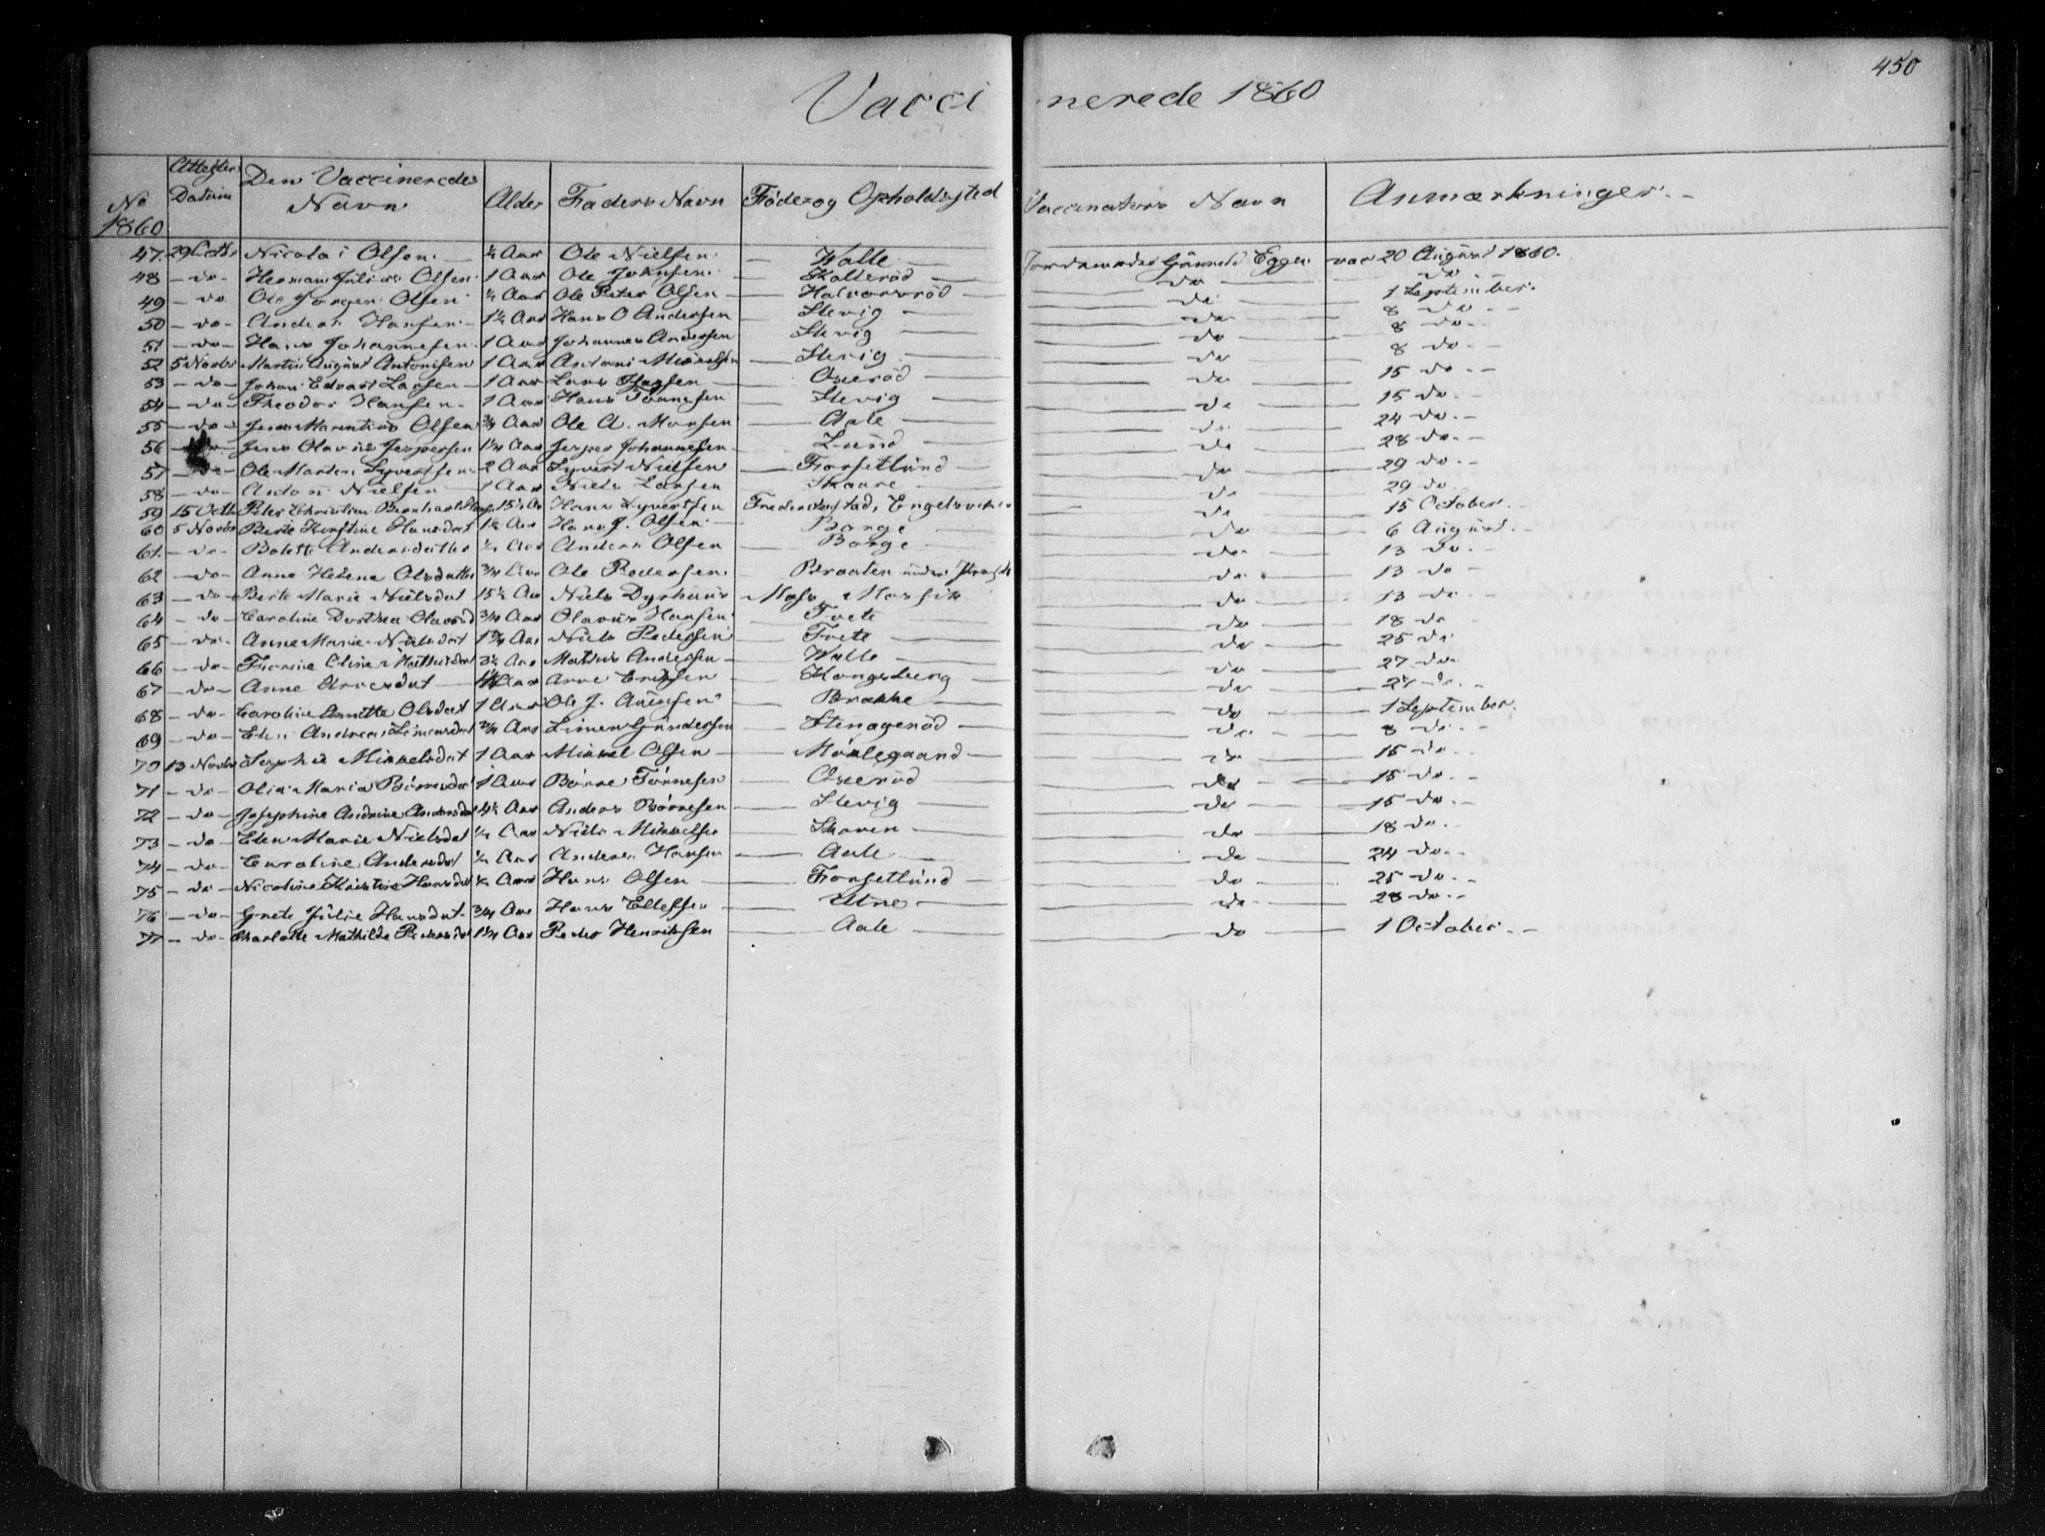 450
Vaccinerede 1860
No 1860 Attestens Datum Den Vaccineredes Navn Alder Faders Navn Föde og Opholdssted Vaccinators Navn Anmærkninger
47 29 Octbr Nicolai Olsen ½ Aar Ole Nielsen Walle Jordemoder Gunneld Egger vac 20 August 1860
48 do Herman Julius Olsen 1 Aar Ole Johnsen Kalleröd do do
49 do Ole Jörgen Olsen ½ Aar Ole Peter Olsen Halvorsröd do 1 September
50 do Anders Hansen 1½ Aar Hans O Andersen Slevig do 8 do
51 do Hans Johannesen 1 Aar Johannes Andersen Slevig do 8 do
52 5 Novbr Martin August Antonisen 1 Aar Antoni Slevig do 8 do
53 do Johan Edvart Larsen 1 Aar Lars Oseröd do 15 do
54 do Theodor Hansen 1 Aar Hans Slevig do 15 do
55 do Jens Marentius Olsen ¾ Aar Ole A. Monsen Aale do 24 do
56 do Jens Olavus Jespersen 1¼ Aar Jesper Johannesen Lund do 28 do
57 do Ole Martin Syvertsen 2 Aar Syvert Nielsen Torsetlund do 29 do
58 do Anton Nielsen 1 Aar Niels Larsen Skaare do 29 do
59 15 Octbr Peter Christian Bernhart 15½ Aar Hans Syvertsen Frederikstad, Engelsviken do 15 October
60 5 Novbr Berte Kirstine Hansdat 1½ Aar Hans J. Olsen Borge do 6 August
61 do Bolette Andersdatter ½ Aar Anders Olsen Borge do 13 do
62 do Anne Helene Olsdatter ¾ Aar Ole Pedersen Braaten under do 13 do
63 do Berte Marie Nielsdat 15½ Aar Niels Dyrhuus Moss do 13 do
64 do Caroline Dorthea Olavsd ¾ Aar Olavus Hansen Tvete do 18 do
65 do Anne Marie Nielsdat 1¾ Aar Niels Pedersen Tvete do 25 do
66 do Thorine Oline Mathisdat 3½ Aar Mathis Andersen Walle do 27 do
67 do Anne Arnesdat Aar Arne Ericksen Kongsberg do 27 do
68 do Caroline Annette Olsdat 1 Aar Ole J. Brække do 1 September
69 do Elen Andrea Simensdat ¾ Aar Simen Gundersen Stenageröd do 8 do
70 13 Novbr Sophie Mikkelsdat 1 Aar Mikkel Olsen Mörlegaard do 15 do
71 do Olia Maria Börresdat 1 Aar Börre Törresen Oseröd do 15 do
72 do Josephine Andrine Andersdat 4½ Aar Anders Börresen Slevig do 15 do
73 do Elen Marie Nielsdat ½ Aar Niels Mikkelsen Skoven do 18 do
74 do Caroline Andersdat ½ Aar Anders Hansen Aale do 24 do
75 do Nicoline Kirstine Hansdat ½ Aar Hans Olsen Torsetlund do 25 do
76 do Grete Julie Hansdat ¾ Aar Hans Ellefsen Utne do 28 do
77 do Charlotte Mathilde Pedersdat 1¼ Aar Peder Henriksen Aale do 1 October